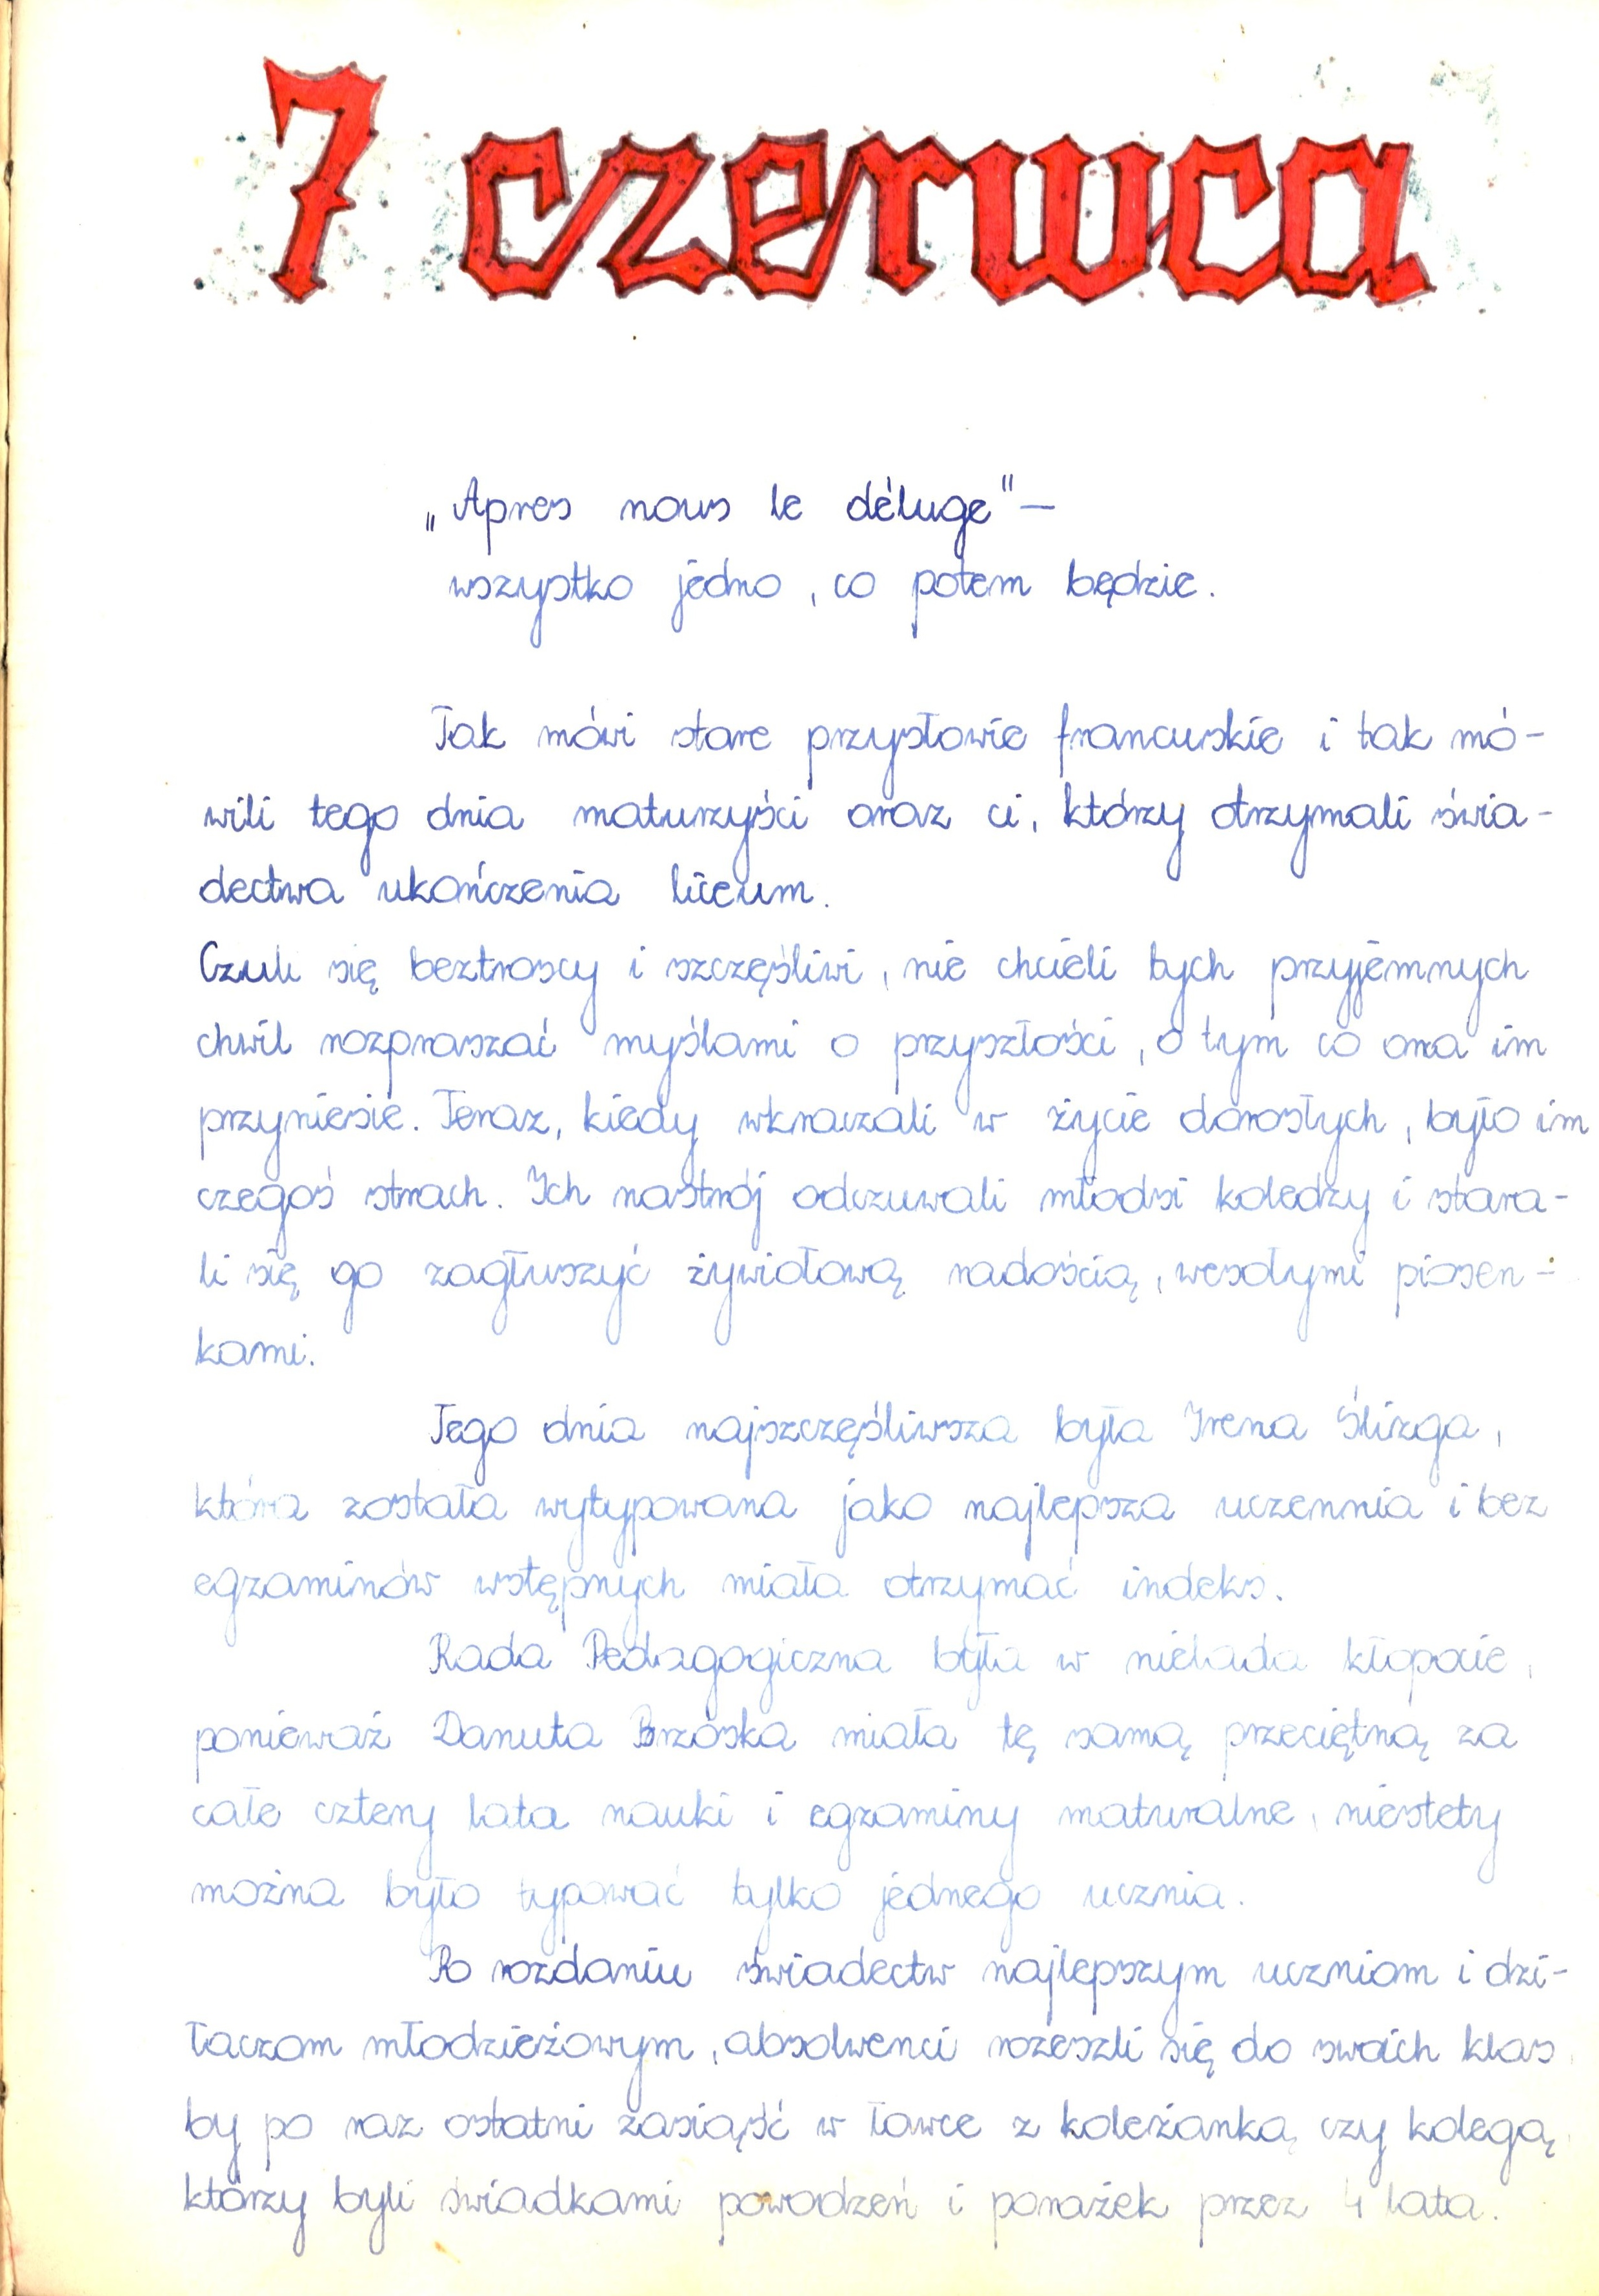 7 czerwca
„Apres nous le déluge" –
wszystko jedno, co potem będzie.
Tak mówi stare przysłowie francuskie i tak mó-
wili tego dnia maturzyści oraz ci, którzy otrzymali świa-
dectwa ukończenia liceum.
Czuli się beztroscy i szczęśliwi, nie chcieli tych przyjemnych
chwil rozpraszać myślami o przyszłości, o tym co ona im
przyniesie. Teraz, kiedy wkraczali w życie dorosłych, było im
czegoś strach. Ich nastrój odczuwali młodsi koledzy i stara-
li się go zagłuszyć żywiołową radością, wesołymi piosen-
kami.
Tego dnia najszczęśliwsza była Irena Ślizga,
która została wytypowana jako najlepsza uczennia i bez
egzaminów wstępnych miała otrzymać indeks.
Rada Pedagogiczna była w nielada kłopocie,
ponieważ Danuta Brzóska miała tę samą przeciętną za
całe cztery lata nauki i egzaminy maturalne, niestety
można było typować tylko jednego ucznia.
Po rozdaniu świadectw najlepszym uczniom i dzi-
łaczom młodzieżowym, absolwenci rozeszli się do swoich klas,
by po raz ostatni zasiąść w ławce z koleżanką czy kolegą,
którzy byli świadkami powodzeń i porażek przez 4 lata.